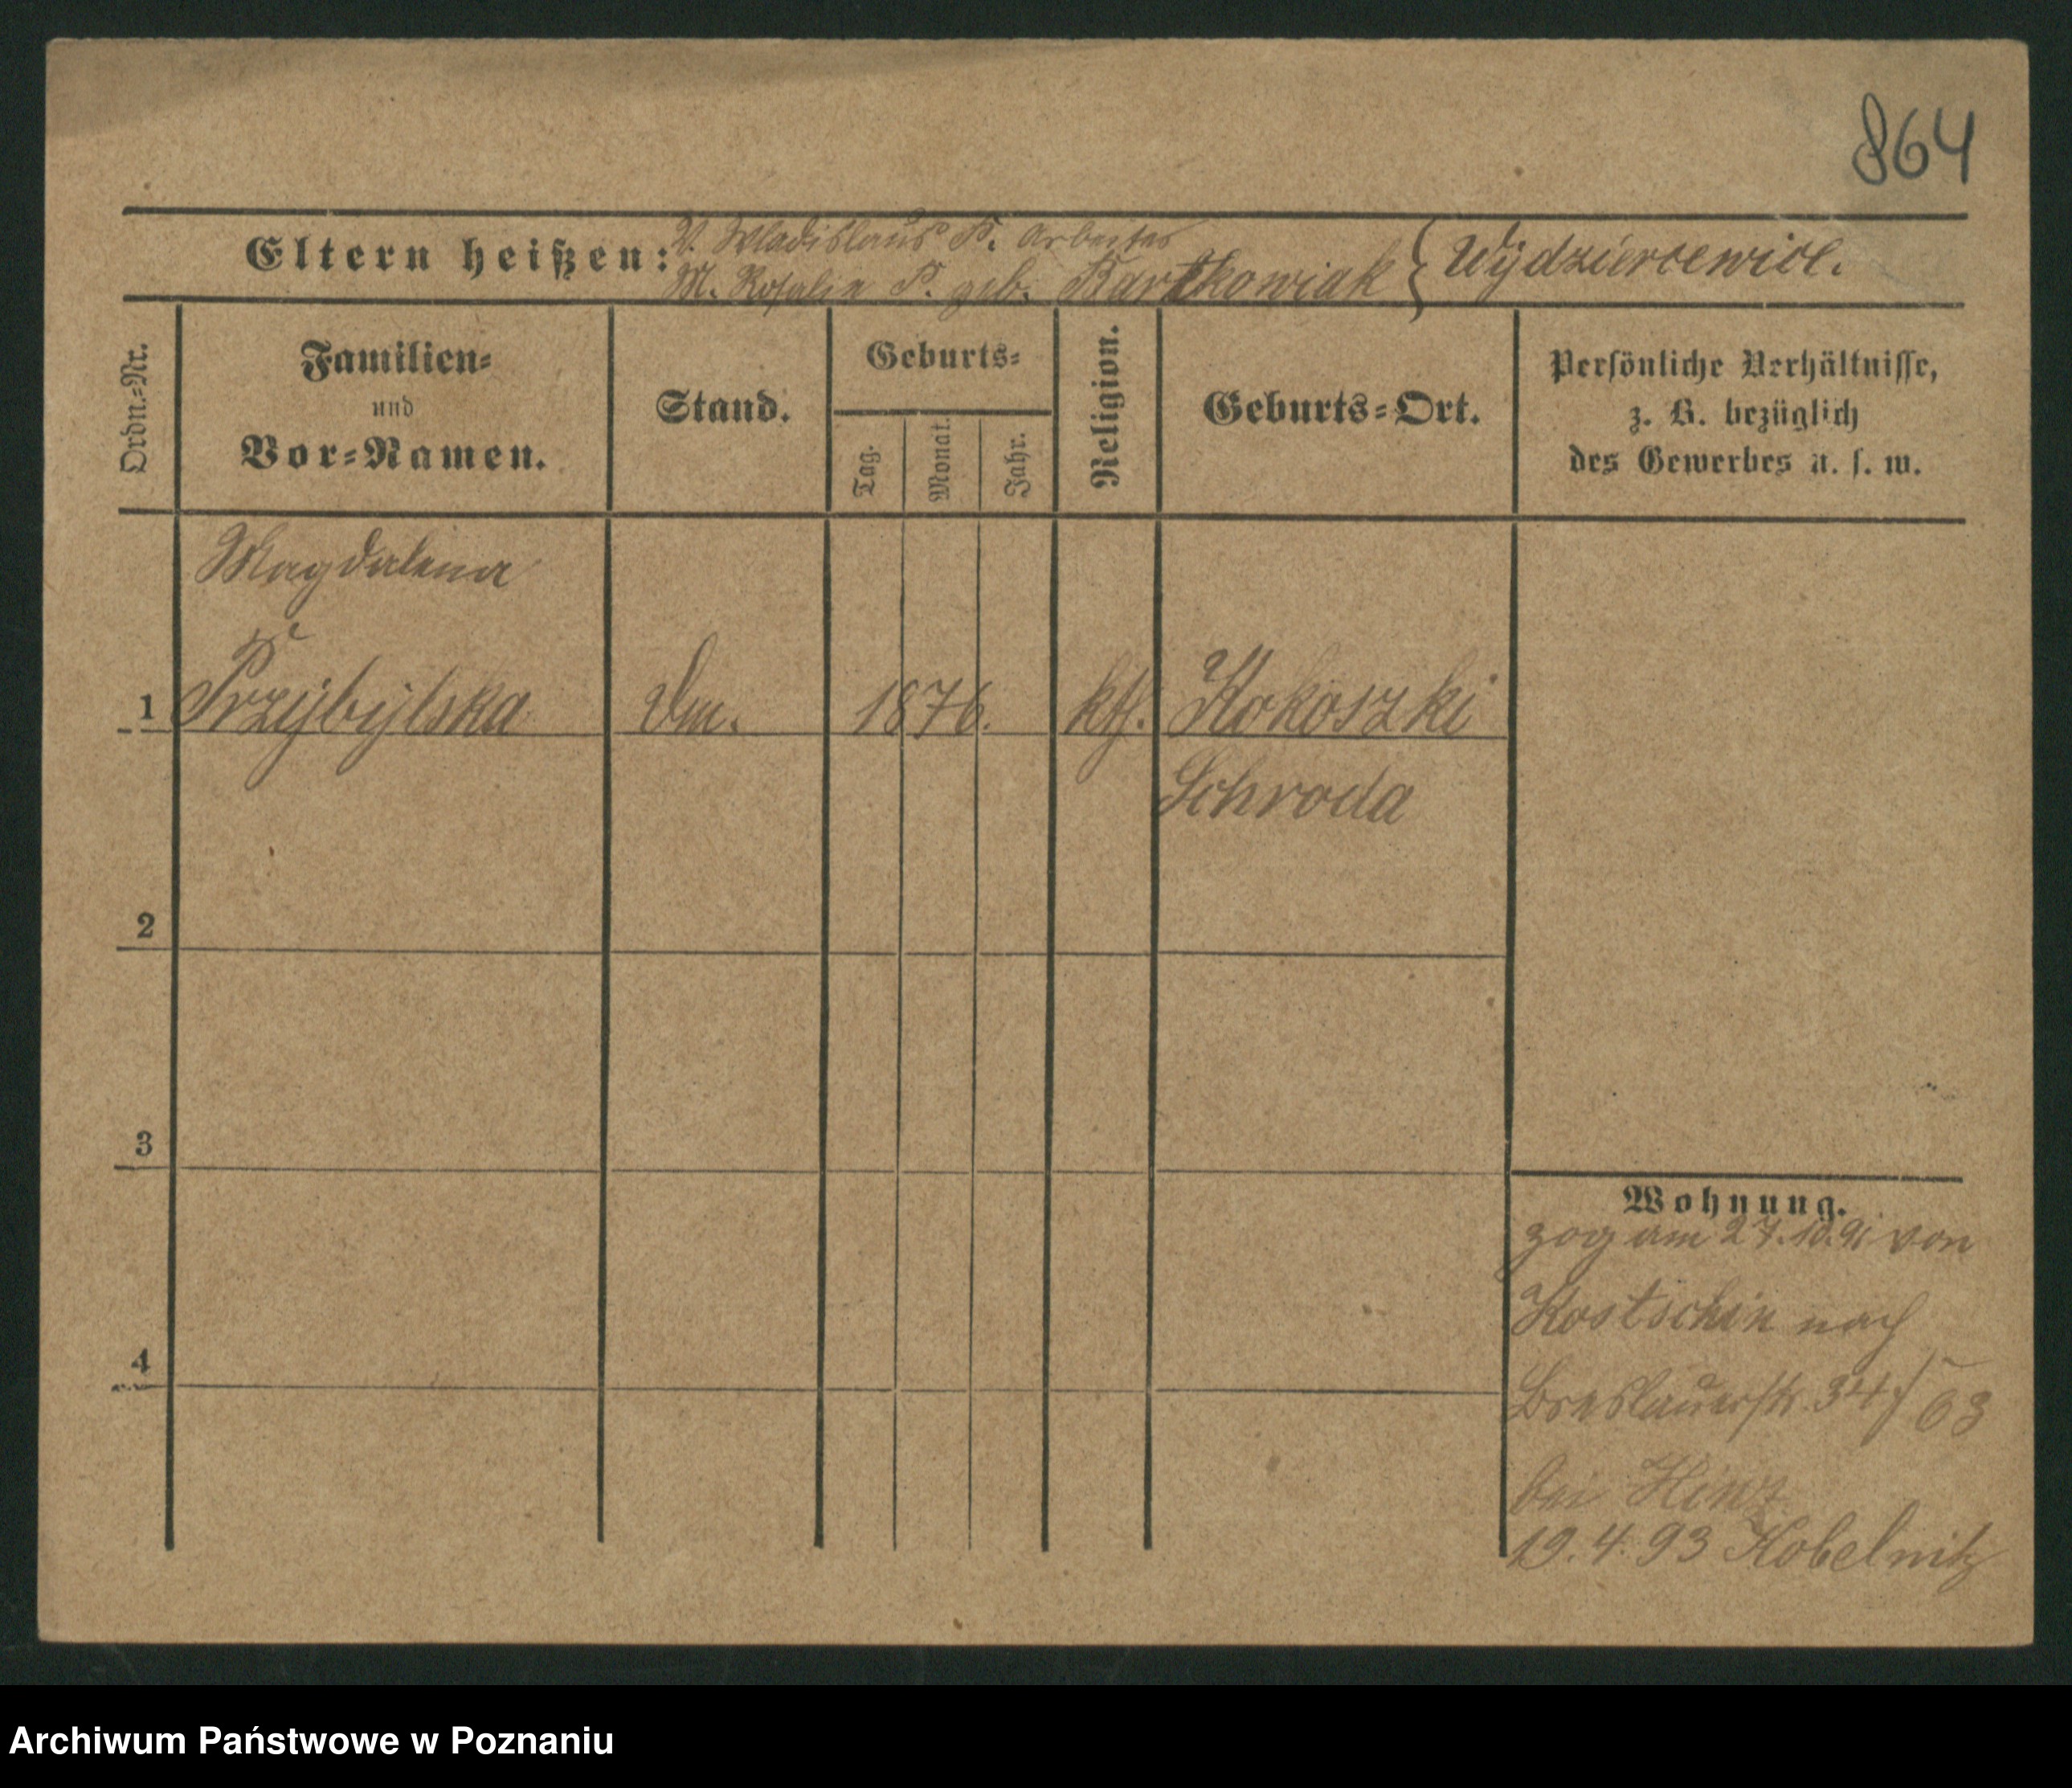 864
Eltern heißen: V. Wladislaus P. Arbeiter
M. Rosalie P. geb. Bartkowiak } Wydzierzewice.
Ordn.-Nr.
Familien-
und
Vor-Namen.
Stand.
Geburts-
Tag.
Monat.
Jahr.
Religion.
Geburts-Ort.
Persönliche Verhältnisse,
z. B. bezüglich
des Gewerbes u. s. w.
Magdalena
1 Przybylska
1876. kth. Kokoszki
Schroda
2
3
4
Wohnung.
zog am 27.10.91 von
Kostschin nach
Breslauerstr. 34/
63
bei Hinz
19.4.93 Kobelnitz
Archiwum Państwowe w Poznaniu